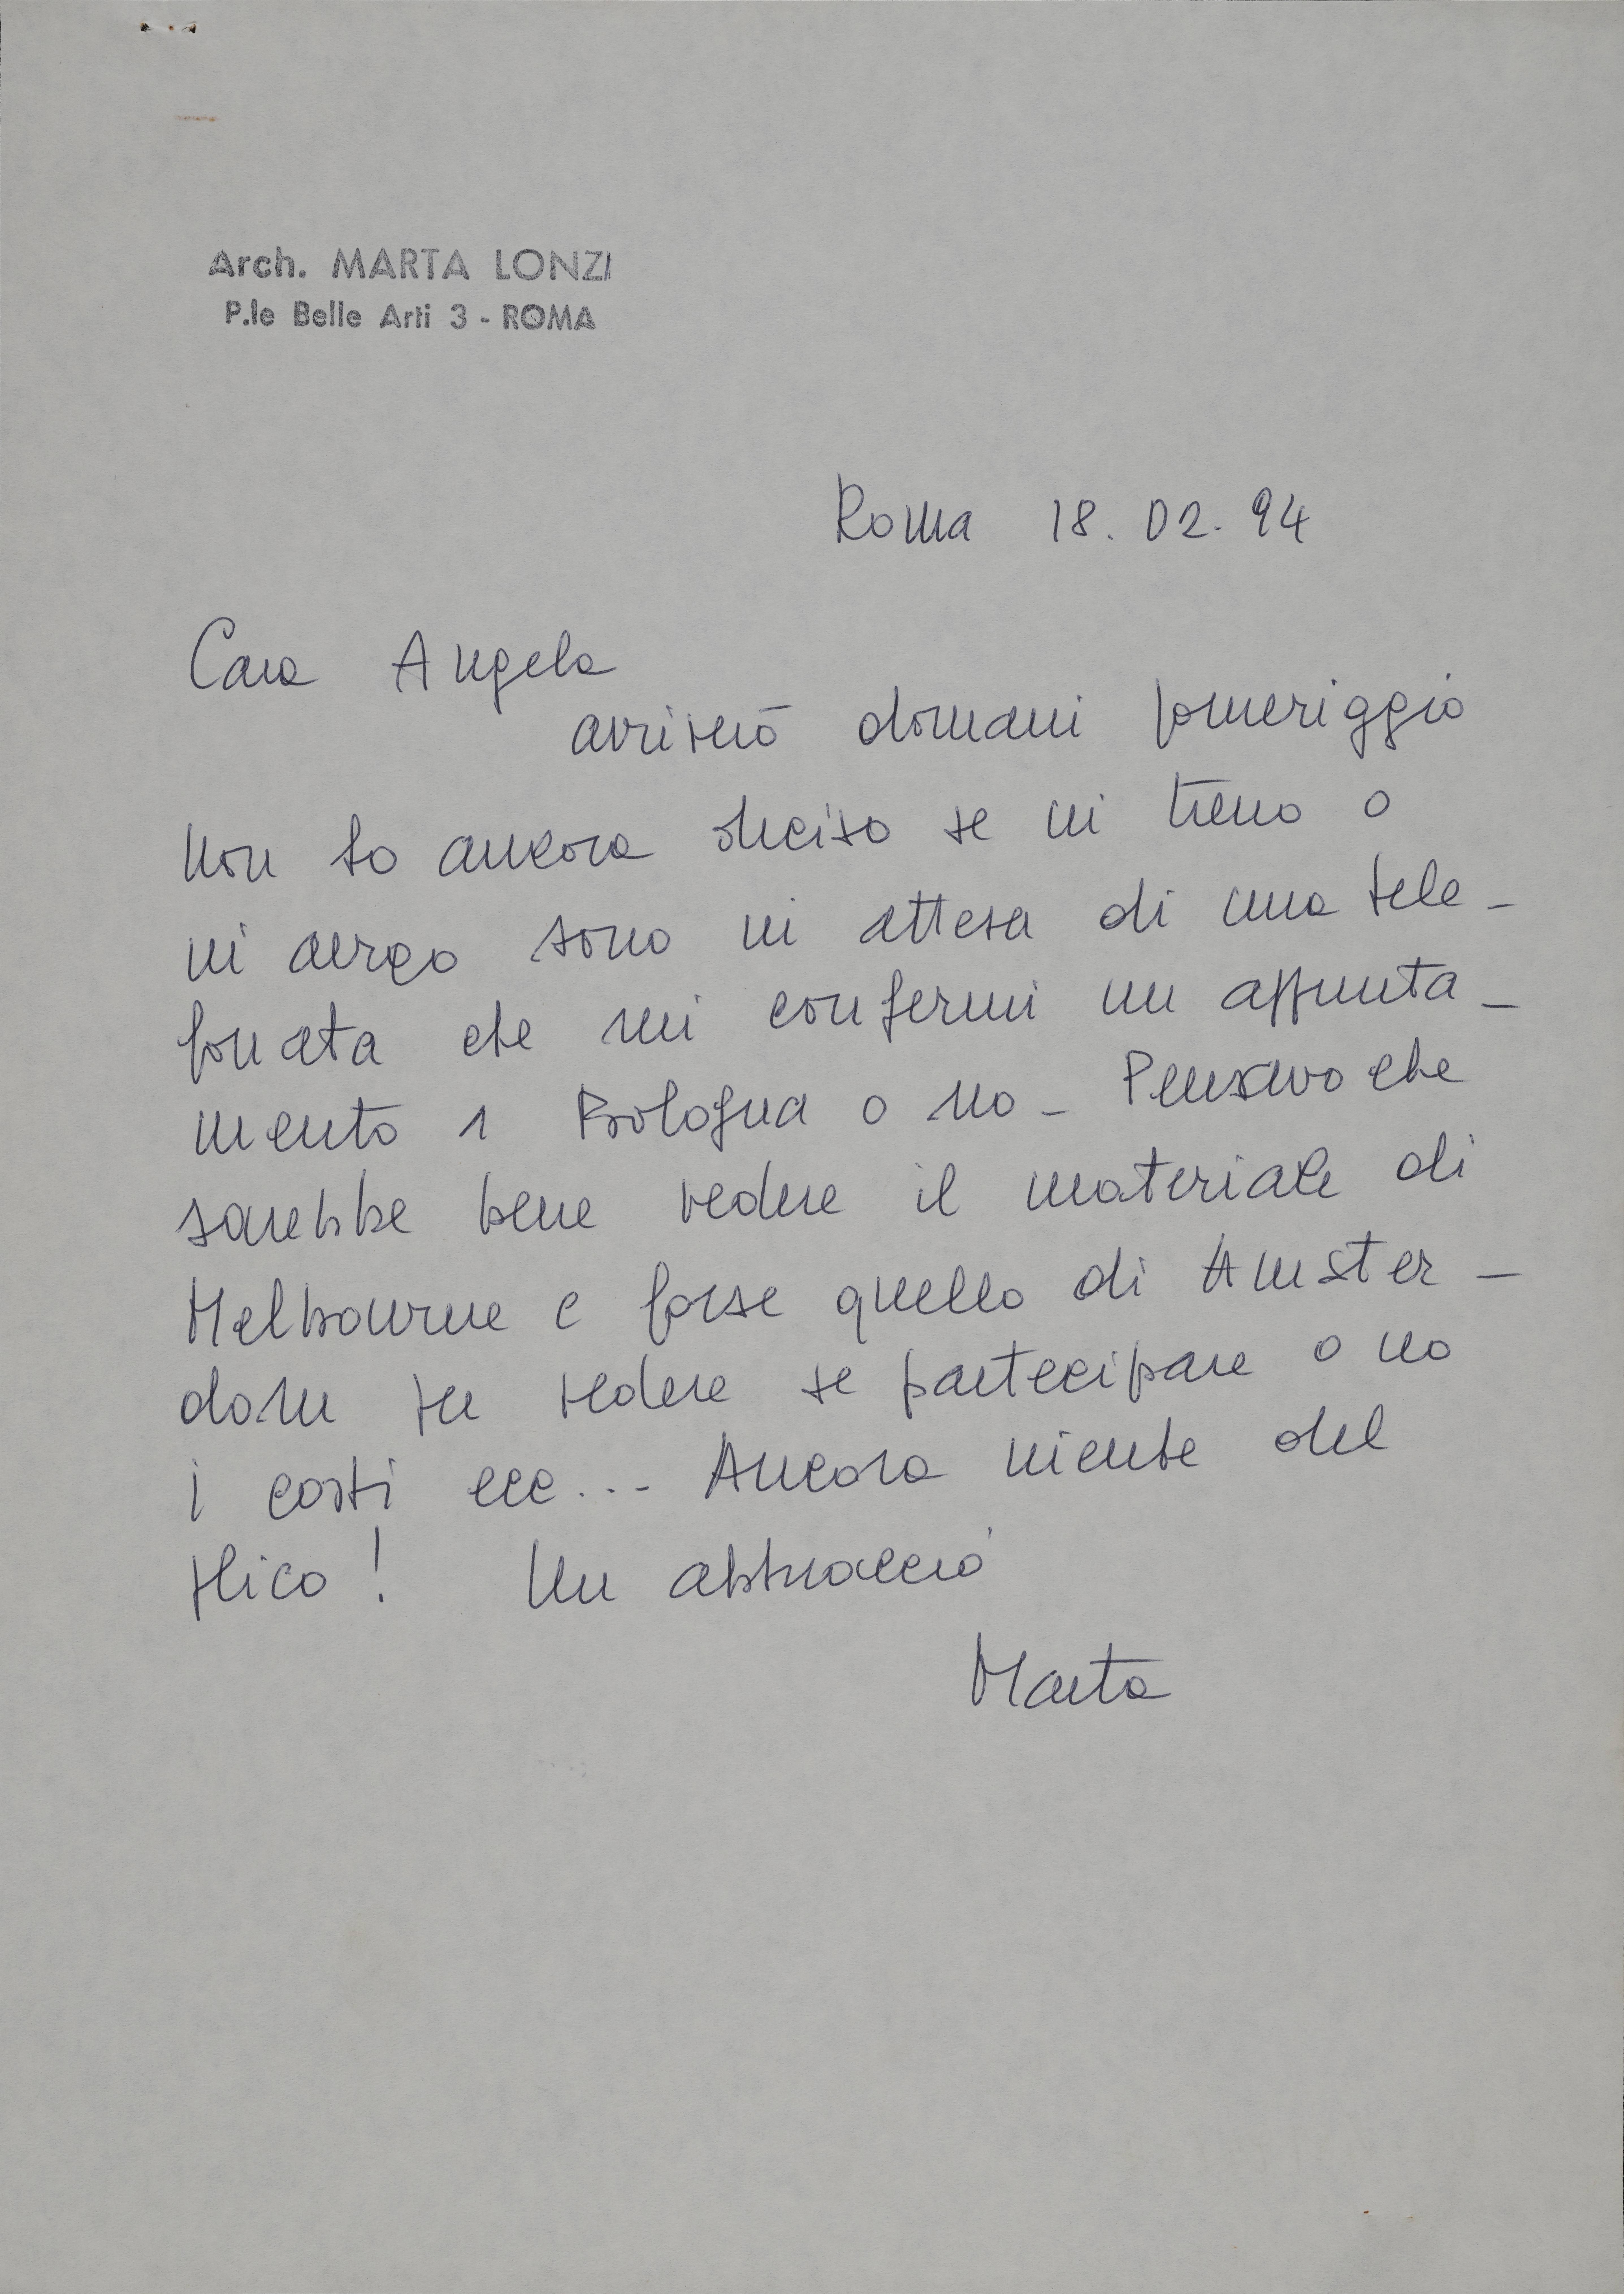 Arch. MARTA LONZI
P.le Belle Arti 3 - ROMA
Roma 18. 02. 94
Cara Angela
arriverò domani pomeriggio
non ho ancora deciso se in treno o
in aereo sono in attesa di una tele-
fonata che mi confermi un appunta-
mento a Bologna o no - Pensavo che
sarebbe bene vedere il materiale di
Melbourne e forse quello di Amster-
dam per vedere se partecipare o no
i costi ecc... Ancora niente del
Mico! Un abbraccio
Marta